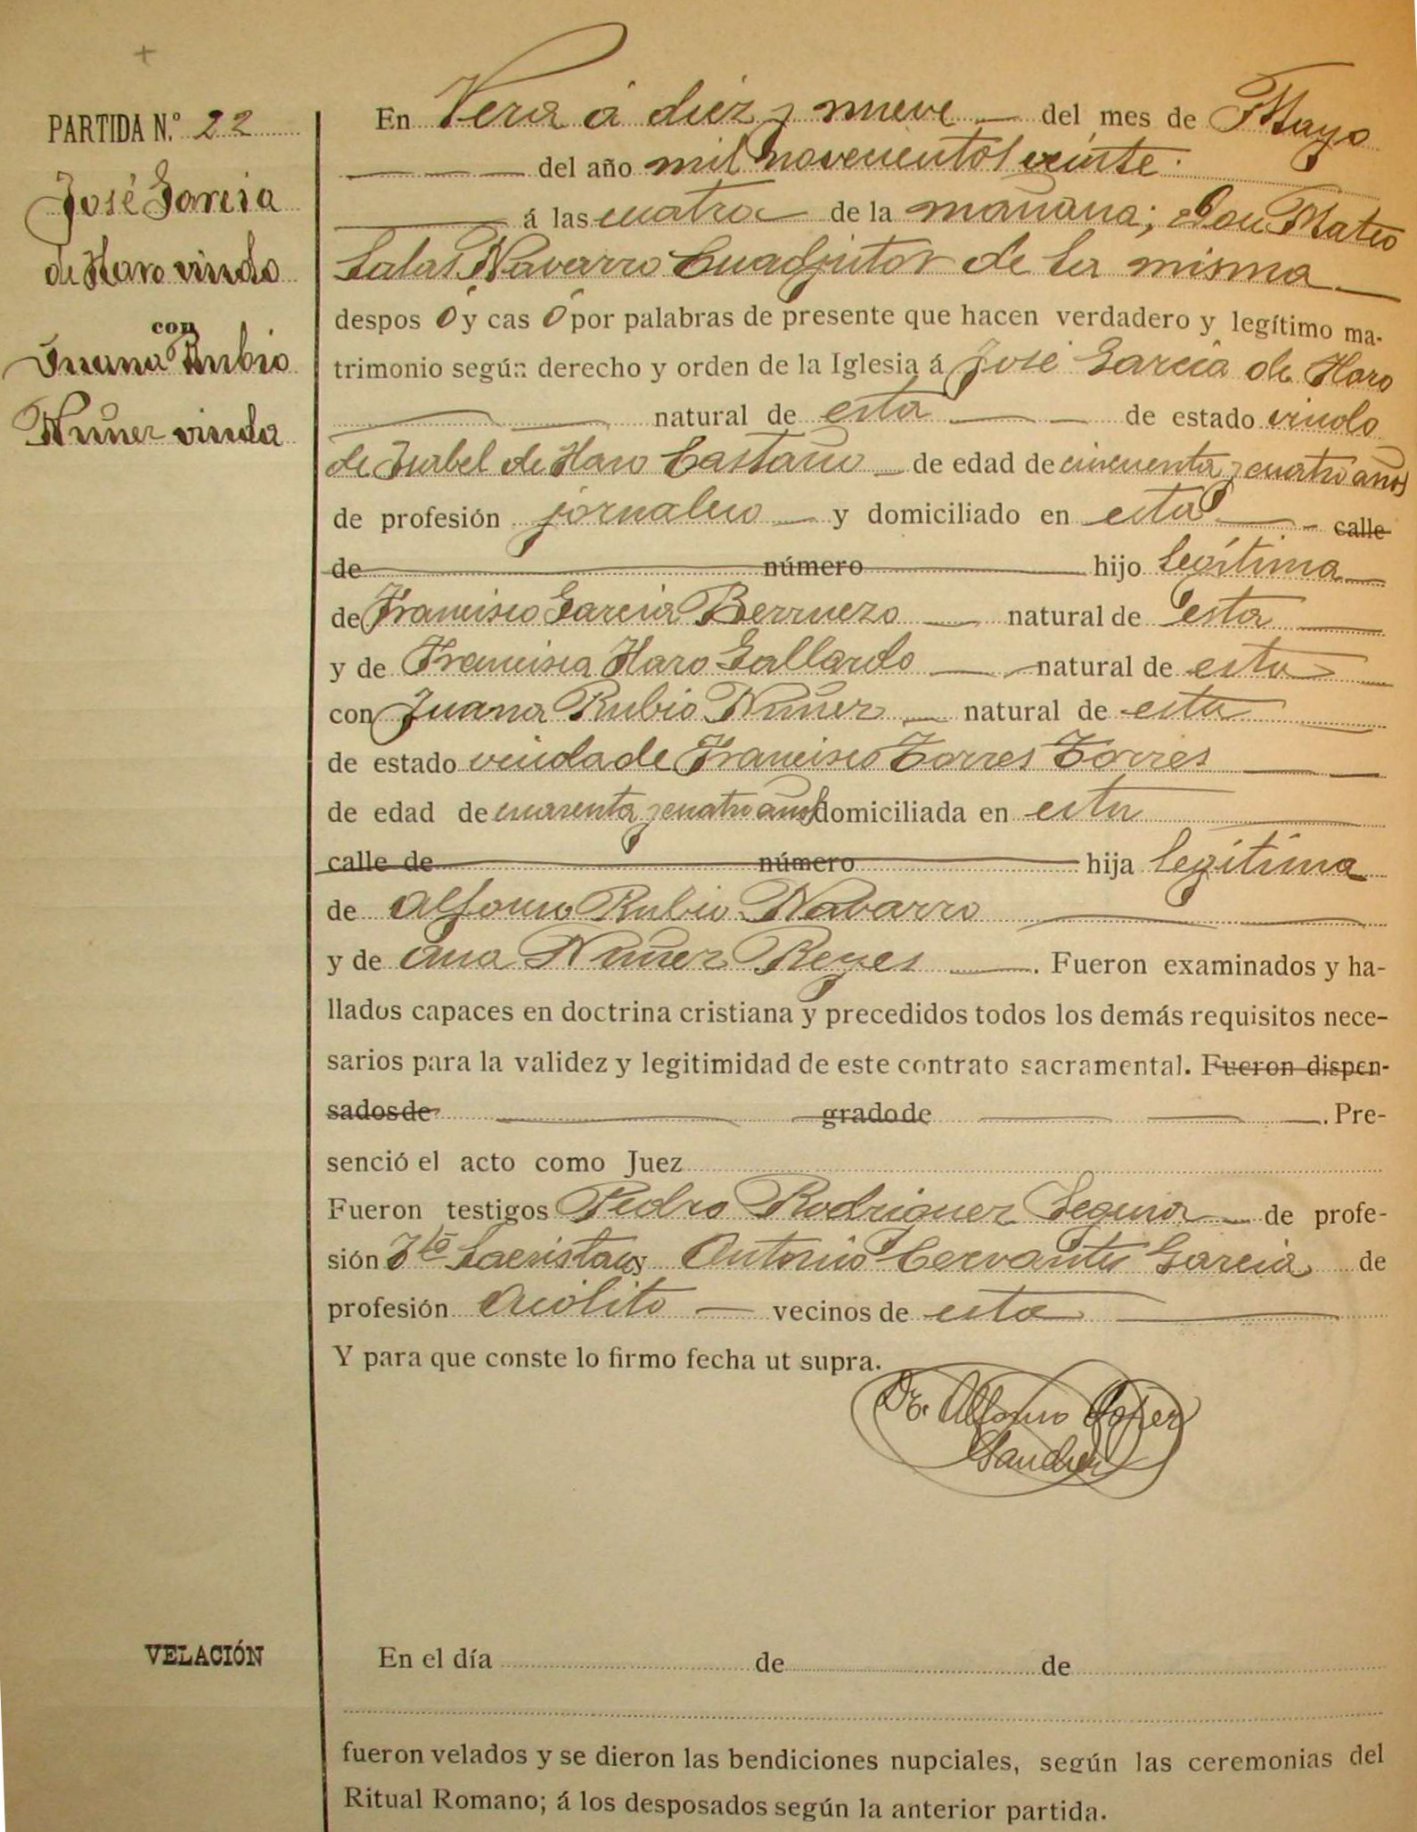 PARTIDA N.º 22
José Garcia
de Haro viudo
con
Juana Rubio
Nuñez viuda
En Vera á diez y nueve del mes de Mayo
del año mil novecientos veinte.
á las cuatro de la mañana; Don Mateo
Salas Navarro Cuadjutor de la misma
despos ó y cas ó por palabras de presente que hacen verdadero y legítimo ma-
trimonio según derecho y orden de la Iglesia á José Garcia de Haro
natural de esta de estado viudo
de Isabel de Haro Castaño de edad de cincuenta y cuatro años
de profesión jornalero y domiciliado en esta calle
de número hijo legítimo
de Francisco Garcia Berruezo natural de esta
y de Francisca Haro Gallardo natural de esta
con Juana Rubio Nuñez natural de esta
de estado viuda de Francisco Torres Torres
de edad de cuarenta y cuatro años domiciliada en esta
calle de número hija legítima
de Alfonso Rubio Navarro
y de Ana Nuñez Reyes . Fueron examinados y ha-
llados capaces en doctrina cristiana y precedidos todos los demás requisitos nece-
sarios para la validez y legitimidad de este contrato sacramental. Fueron dispen-
sados de grado de . Pre-
senció el acto como Juez
Fueron testigos Pedro Rodriguez Segura de profe-
sión Sacristan y Antonio Cervantes Garcia de
profesión Acólito vecinos de esta
Y para que conste lo firmo fecha ut supra.
Dr. Alfonso Lopez
Sanchez
VELACIÓN
En el día de de
fueron velados y se dieron las bendiciones nupciales, según las ceremonias del
Ritual Romano; á los desposados según la anterior partida.